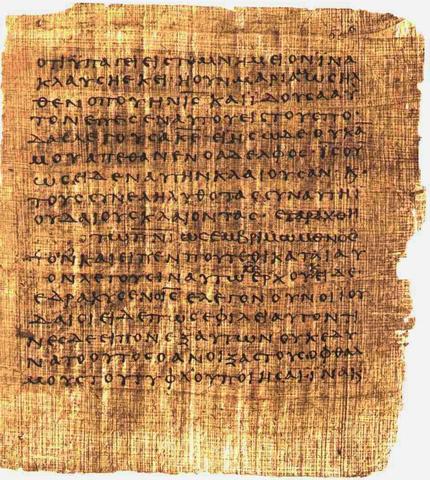 ΟΤΙ ΥΠΑΓΕΙ ΕΙϹ ΤΟ ΜΝΗΜΕΙΟΝ ΙΝΑ
ΚΛΑΥϹΗ ΕΚΕΙ Η ΟΥΝ ΜΑΡΙΑ ΩϹ ΗΛ
ΘΕΝ ΟΠΟΥ ΗΝ Ι̅Ϲ̅ ΚΑΙ ΙΔΟΥϹΑ ΑΥ
ΤΟΝ ΕΠΕϹΕΝ ΑΥΤΟΥ ΕΙϹ ΤΟΥϹ ΠΟ
ΔΑϹ ΛΕΓΟΥϹΑ Κ̅Ε̅ ΕΙ ΗϹ ΩΔΕ ΟΥΚ Α
ΜΟΥ ΑΠΕΘΑΝΕΝ Ο ΑΔΕΛΦΟϹ Ι̅Ϲ̅ ΟΥ
ΩϹ ΕΙΔΕΝ ΑΥΤΗΝ ΚΛΑΙΟΥϹΑΝ Κ
ΤΟΥϹ ϹΥΝΕΛΗΛΥΘΟΤΑϹ ϹΥΝ ΑΥΤΗ Ι
ΟΥΔΑΙΟΥϹ ΚΛΑΙΟΝΤΑϹ· ΕΤΑΡΑΧΘΗ
ΤΩ Π̅Ν̅Ι̅ ΩϹ ΕΜΒΡΙΜΩΜΕΝΟϹ
ΚΑΙ ΕΙΠΕΝ ΠΟΥ ΑΥ
ΤΟΝ ΛΕΓΟΥϹΙΝ ΑΥΤΩ ΕΡΧΟΥ ΙΔΕ
ΕΔΑΚΡΥϹΕΝ Ο Ι̅Ϲ̅ ΕΛΕΓΟΝ ΟΥΝ ΟΙ ΙΟΥ
ΔΑΙΟΙ ΙΔΕ ΠΩϹ ΕΦΙΛΕΙ ΑΥΤΟΝ ΤΙ
ΝΕϹ ΔΕ ΕΙΠΟΝ ΕΞ ΑΥΤΩΝ ΟΥΚ ΕΔΥ
ΝΑΤΟ ΟΥΤΟϹ Ο ΑΝΟΙΞΑϹ ΤΟΥϹ ΟΦΘΑΛ
ΜΟΥϹ ΤΟΥ ΤΥΦΛΟΥ ΠΟΙΗϹΑΙ· ΙΝΑ Κ